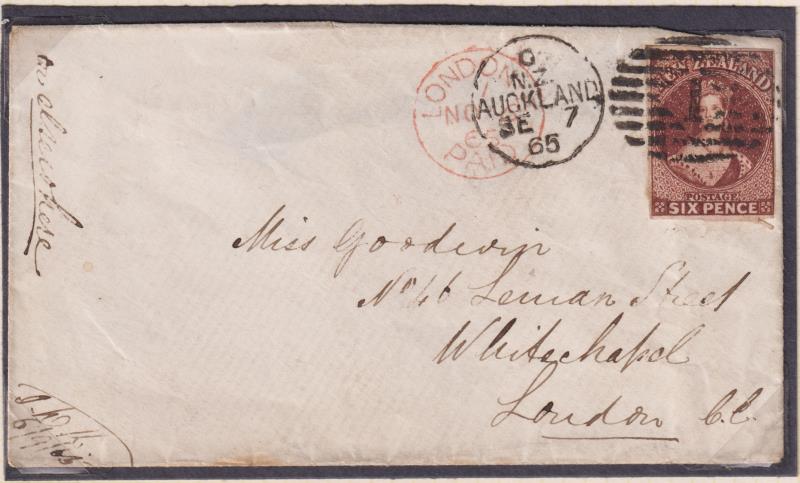 LONDON
NO
65
PAID
N.Z.
AUCKLAND
SE 7
65
NEW ZEALAND
POSTAGE
SIX PENCE
Miss Goodwin
No 46 Leman Street
Whitechapel
London